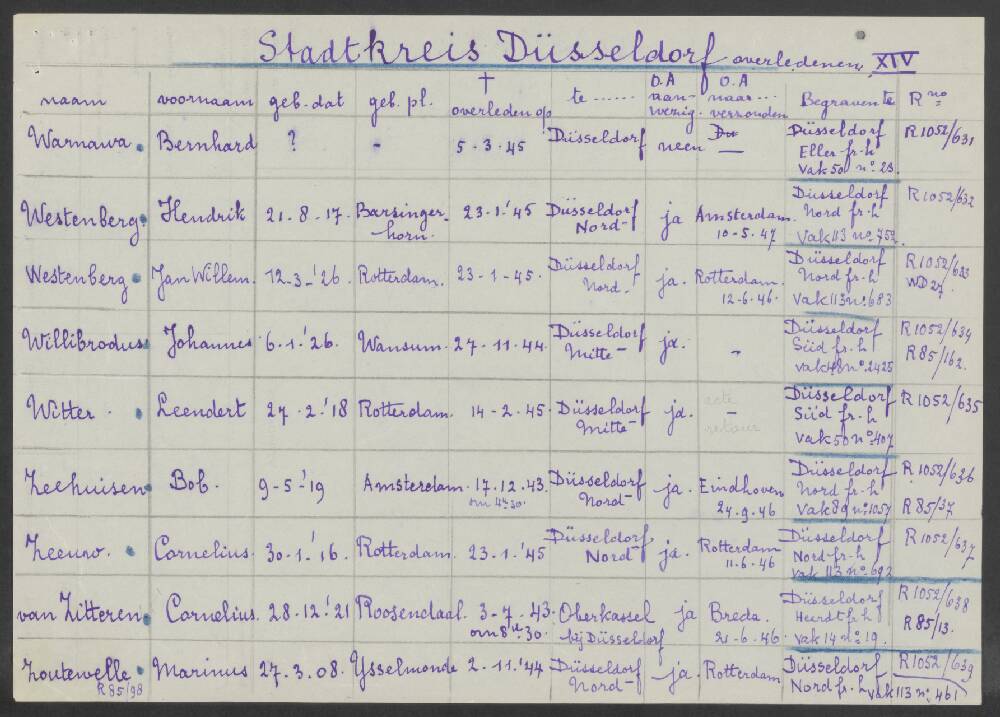 Stadtkreis Düsseldorf overledenen XIV
naam voornaam geb. dat geb. pl. † overleden op te ...... O.A aanwezig. O.A naar... verzonden Begraven te R no
Warnawa. Bernhard ? - 5-3-45 Düsseldorf neen — Düsseldorf
Eller fr-h
Vak 50 no. 23. R1052/631
Westenberg. Hendrik 21.8-17. Barsinger- 23-1.'45 Düsseldorf ja Amsterdam. Düsseldorf R1052/632
horn. Nord- 10-5.47 Nord fr-h
Vak 113 no. 752.
Westenberg. Jan Willem. 12.3-'26. Rotterdam. 23-1-45. Düsseldorf ja. Rotterdam. Düsseldorf R1052/633
Nord. 12-6.46. Nord fr-h WD27.
Vak 113 no. 683
Willibrodus Johannes 6.1.'26. Wansum. 27-11.44. Düsseldorf ja. - Düsseldorf R1052/634
Mitte- Süd fr-h R85/162.
vak 48 no. 2425
Witter. Leendert 27.2.'18 Rotterdam. 14-2.45. Düsseldorf ja. acte Düsseldorf R1052/635
Mitte- — Süd fr-h
retour Vak 50 no 407
Zeehuisen Bob. 9-5-'19 Amsterdam. 17.12.43. Düsseldorf ja. Eindhoven Düsseldorf R1052/636
om 4u 30. Nord- 24.9.46 Nord fr-h R85/37
Vak 89 no. 1057
Zeeuw. Cornelius. 30-1.'16. Rotterdam. 23-1.'45 Düsseldorf ja. Rotterdam Düsseldorf R1052/637
Nord- 11-6.46 Nord-fr-h
vak 113 no. 692
van Zitteren. Cornelius. 28.12.'21 Roosendaal. 3-7.43. Oberkassel ja Breda. Düsseldorf R1052/638
om 8u 30. bij Düsseldorf 21-6.46. Heerdt fr h R85/13.
vak 14 no. 19.
Zoutewelle. Marinus 27.3.08. Ysselmonde 2-11.'44 Düsseldorf ja. Rotterdam Düsseldorf R1052/639
R85/98 Nord- Nord fr-h vak 113 no. 461